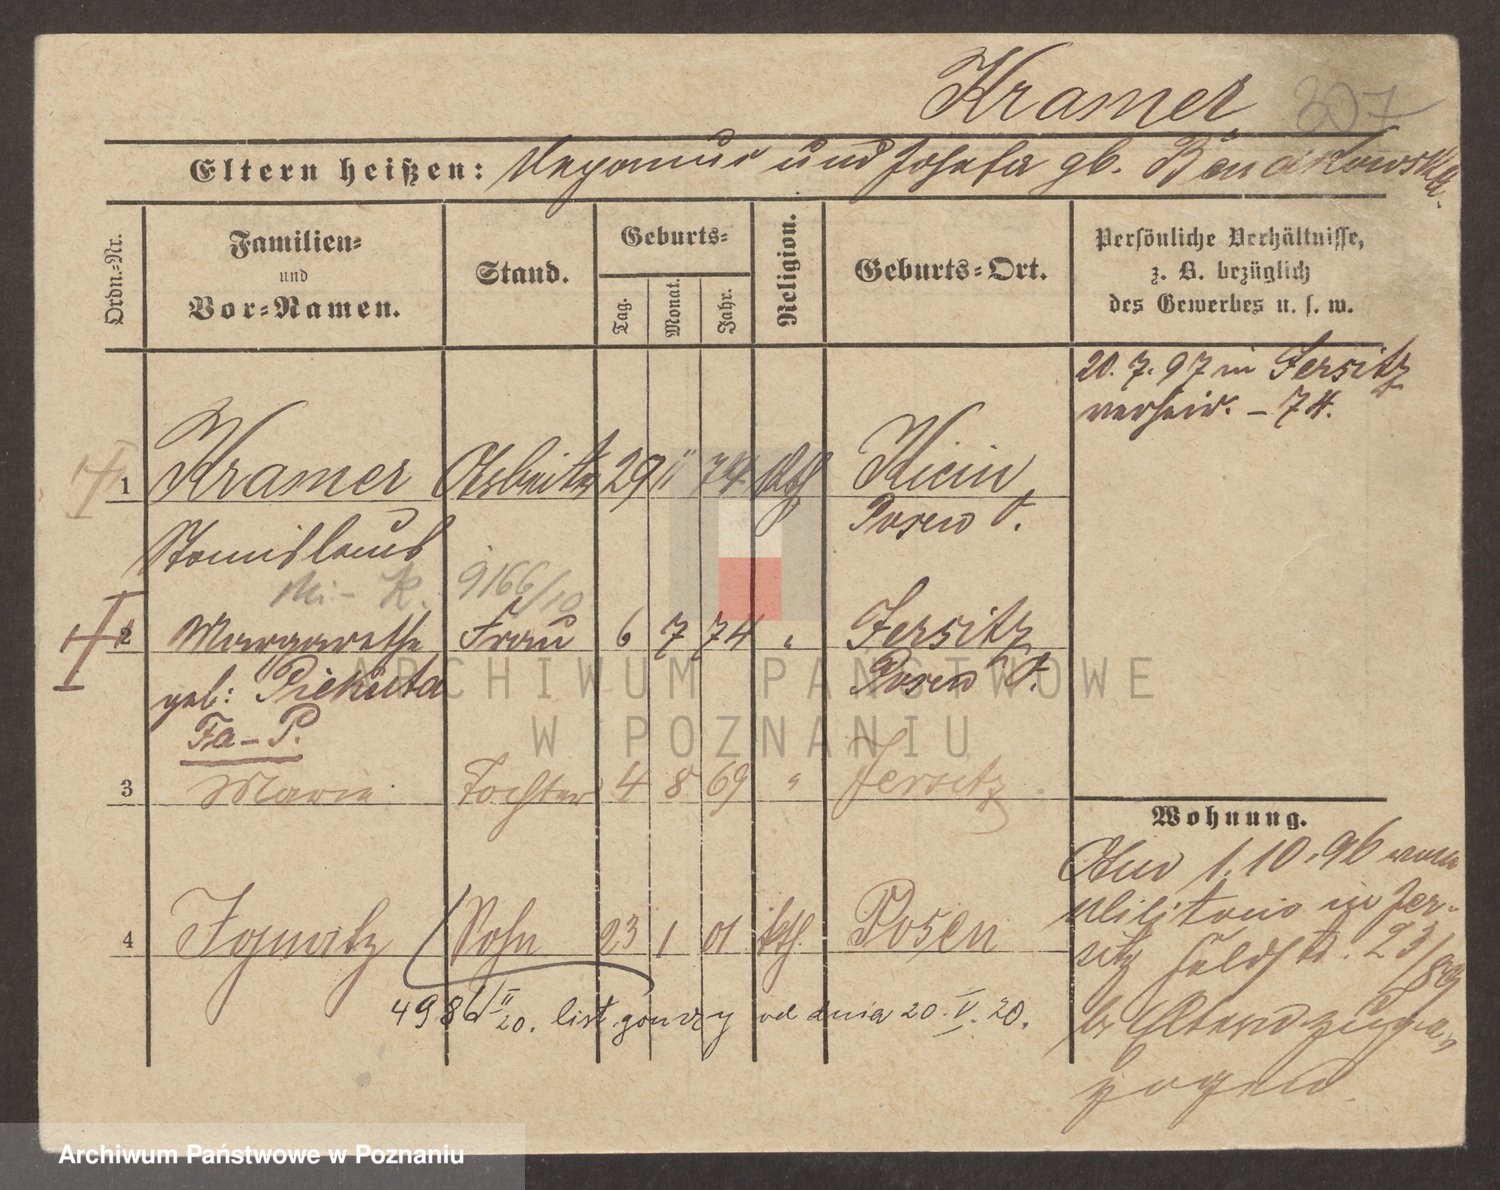 Kramer 307
Eltern heißen: und Josefa gb.
Ordn.-Nr.
Familien-
und
Vor-Namen.
Stand.
Geburts-
Tag.
Monat.
Jahr.
Religion.
Geburts-Ort.
Persönliche Verhältnisse,
z. B. bezüglich
des Gewerbes u. s. w.
20. 7. 97 in Jersitz
verheir. – 74.
1 Kramer Arbeiter 29 11 74 Kth Kicin
Stanislaus Posen O.
9166/10
2 Margarethe Frau 6 7 74 " Jersitz
geb: Piekuta Posen O.
Fa – P.
3 Marie Tochter 4 8 69 " Jersitz
Wohnung.
4 Ignatz Sohn 23 1 01 kth. Posen
Am 1. 10. 96 vom
Militär in Jer-
sitz Feldstr. 23/
b/ Eltern zuge-
zogen.
4986 II/20. list gończy od dnia 20. V. 20.
ARCHIWUM PAŃSTWOWE
W POZNANIU
Archiwum Państwowe w Poznaniu